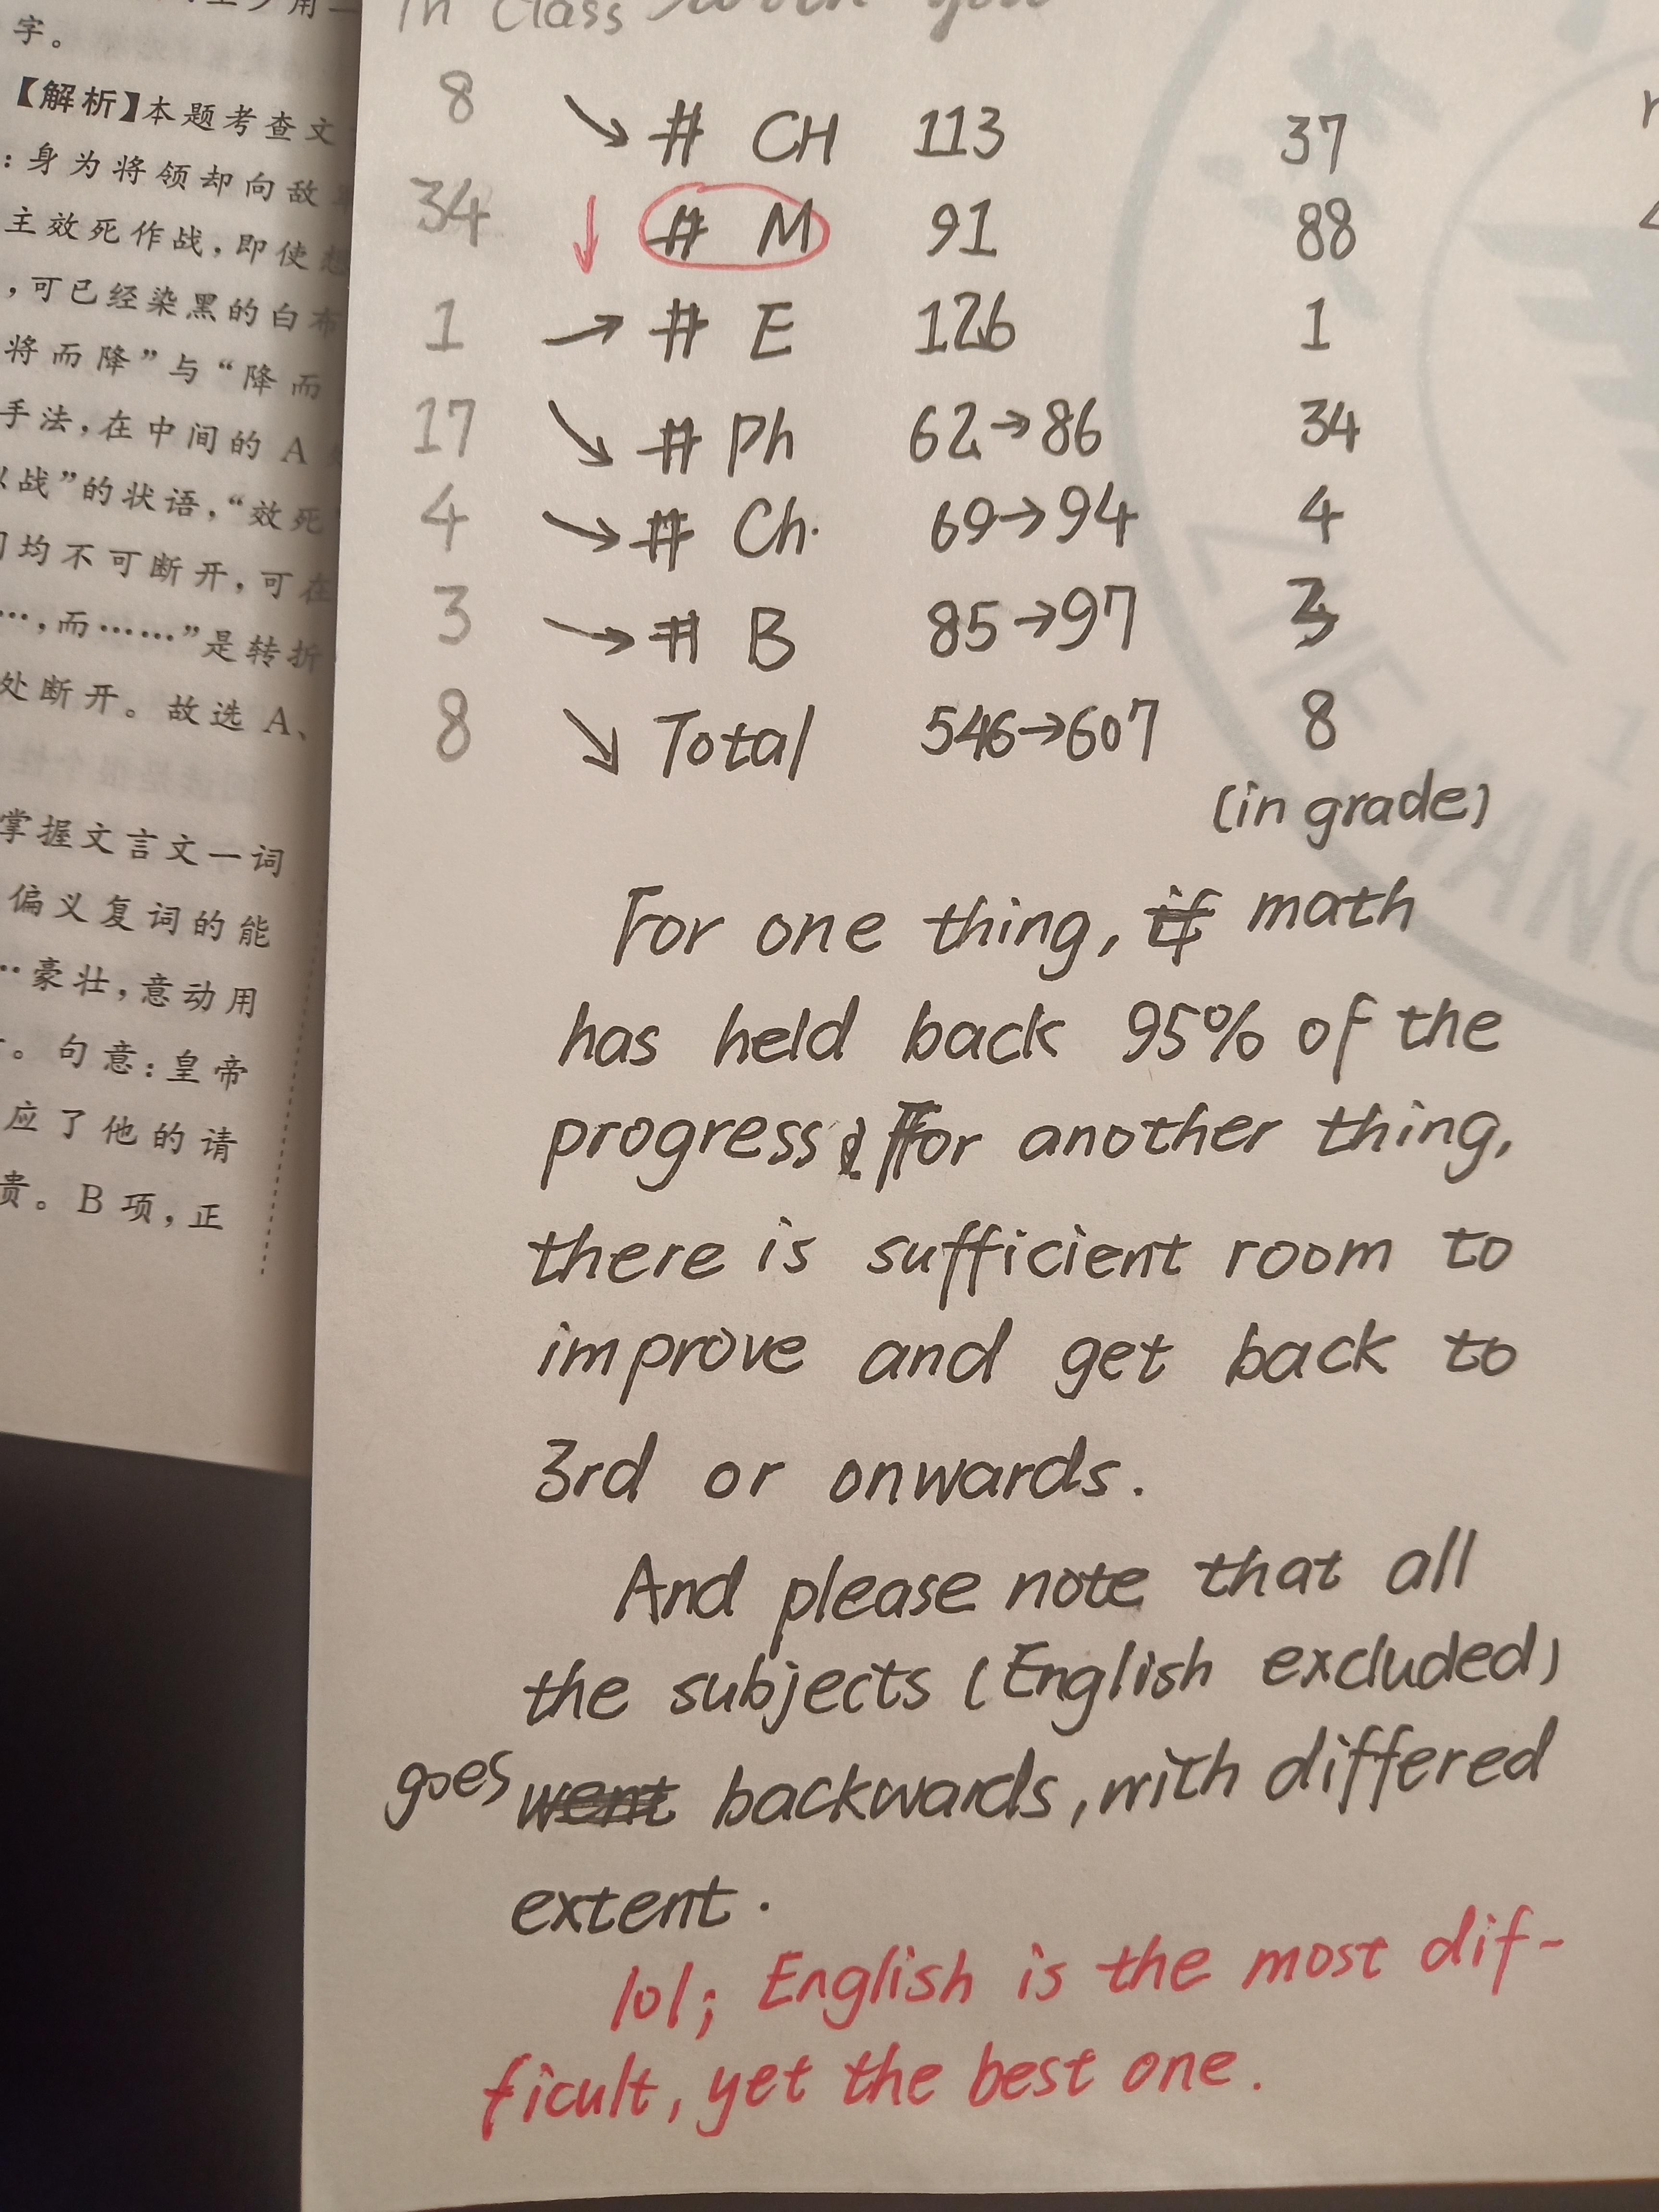 字。
【解析】本题考查文
：身为将领却向敌
主效死作战，即使
，可已经染黑的白布
将而降”与“降而
手法，在中间的 A
以战”的状语，“效死
均不可断开，可在
…，而……”是转折
处断开。故选 A、
掌握文言文一词
偏义复词的能
…豪壮，意动用
。句意：皇帝
应了他的请
贵。B 项，正
in class
8 # CH 113 37
34 # M 91 88
1 # E 126 1
17 # Ph 62→86 34
4 # Ch. 69→94 4
3 # B 85→97 3
8 Total 546→607 8
(in grade)
For one thing, if math
has held back 95% of the
progress; for another thing,
there is sufficient room to
improve and get back to
3rd or onwards.
And please note that all
the subjects (English excluded)
goes went backwards, with differed
extent.
lol; English is the most dif-
ficult, yet the best one.